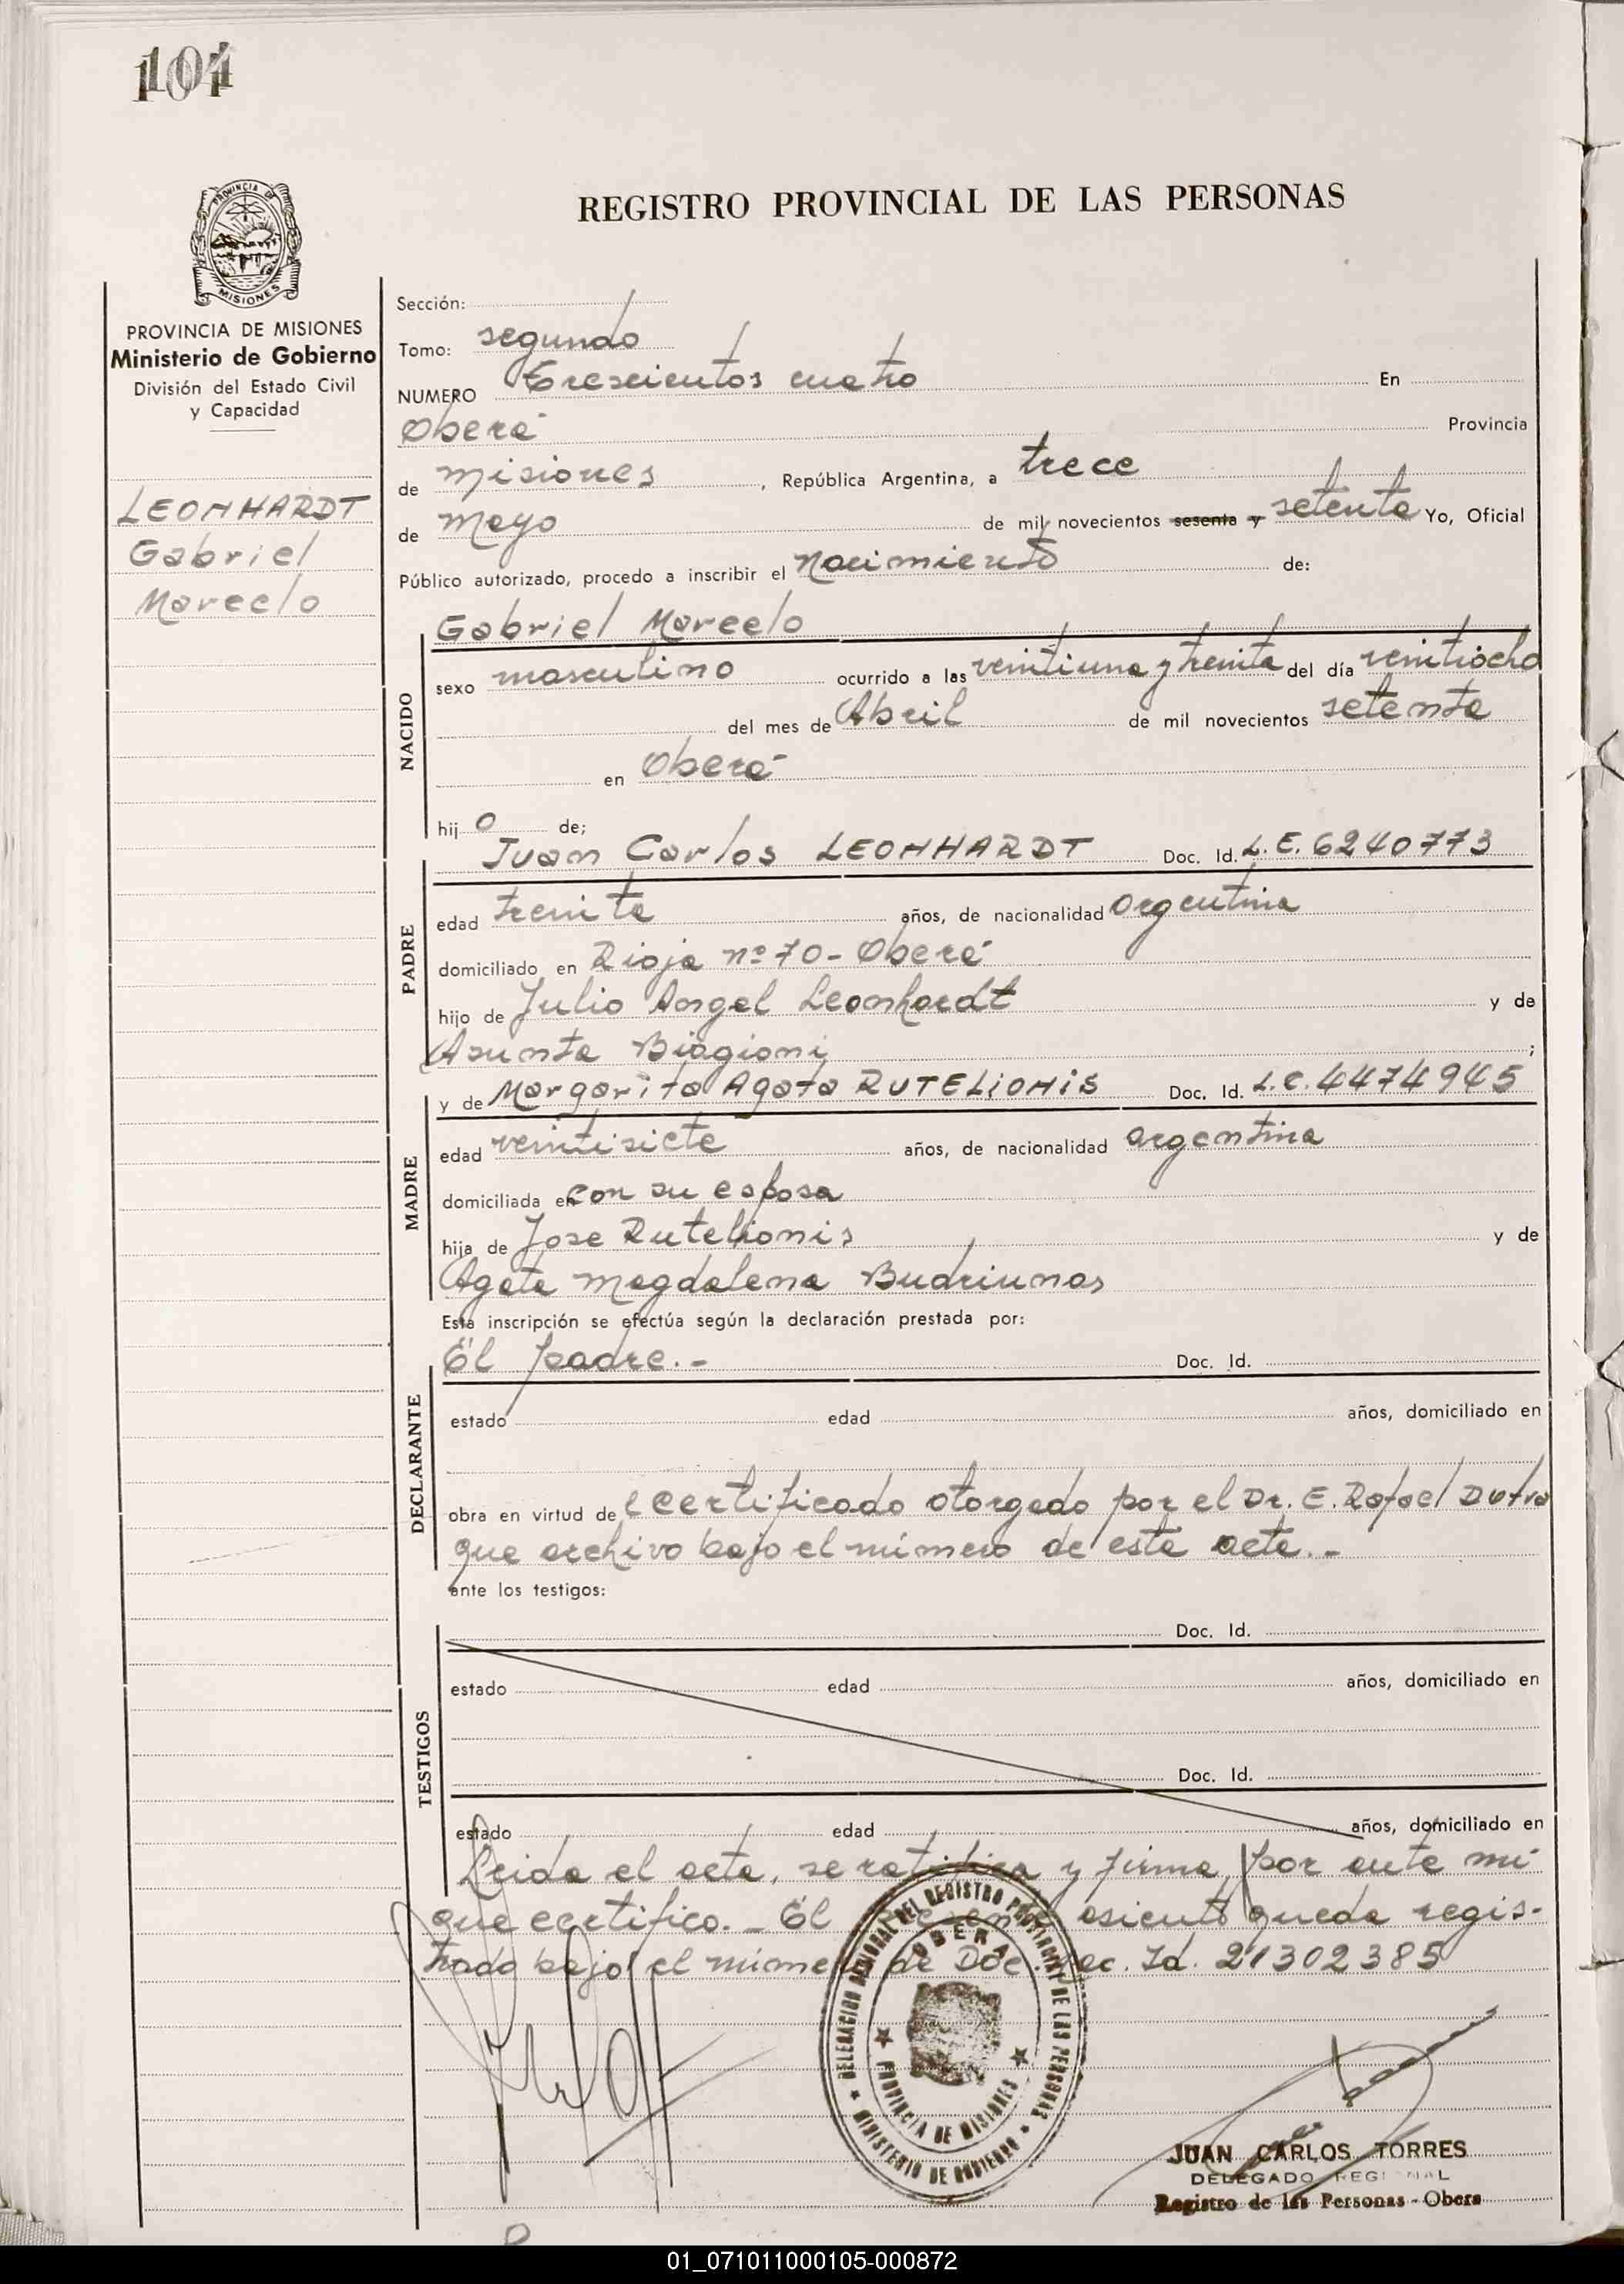 104
PROVINCIA DE MISIONES
REGISTRO PROVINCIAL DE LAS PERSONAS
PROVINCIA DE MISIONES
Ministerio de Gobierno
División del Estado Civil
y Capacidad
LEONHARDT
Gabriel
Marcelo
Sección:
Tomo: segundo
NUMERO Trescientos cuatro En
Oberá Provincia
de Misiones, República Argentina, a trece
de Mayo de mil novecientos sesenta y setenta Yo, Oficial
Público autorizado, procedo a inscribir el Nacimiento de:
Gabriel Marcelo
NACIDO
sexo masculino ocurrido a las veintiuna y treinta del día veintiocho
del mes de Abril de mil novecientos setenta
en Oberá
hijo de;
Juan Carlos LEONHARDT Doc. Id. L.E. 6240773
PADRE
edad treinta años, de nacionalidad argentina
domiciliado en Rioja nº 70- Oberá
hijo de Julio Angel Leonhardt y de
Asunta Biagioni;
y de Margarita Agata RUTELIONIS Doc. Id. L.C. 4474945
MADRE
edad veintisiete años, de nacionalidad argentina
domiciliada en con su esposo
hija de Jose Rutelionis y de
Agata Magdalena Budriunas
Esta inscripción se efectúa según la declaración prestada por:
El padre.- Doc. Id.
DECLARANTE
estado edad años, domiciliado en
obra en virtud del certificado otorgado por el Dr. E. Rafael Dutra
que archivo bajo el número de esta acta.-
ante los testigos:
Doc. Id.
TESTIGOS
estado edad años, domiciliado en
Doc. Id.
estado edad años, domiciliado en
Leida el acta, se ratifica y firma, por ante mi
que certifico._ El presente asiento queda regis-
trado bajo el número de Doc. Nac. Id. 21302385
DELEGACION REGIONAL DEL REGISTRO PROVINCIAL DE LAS PERSONAS
OBERA
PROVINCIA DE MISIONES
MINISTERIO DE GOBIERNO
JUAN CARLOS TORRES
DELEGADO REGIONAL
Registro de las Personas - Obera
01_071011000105-000872